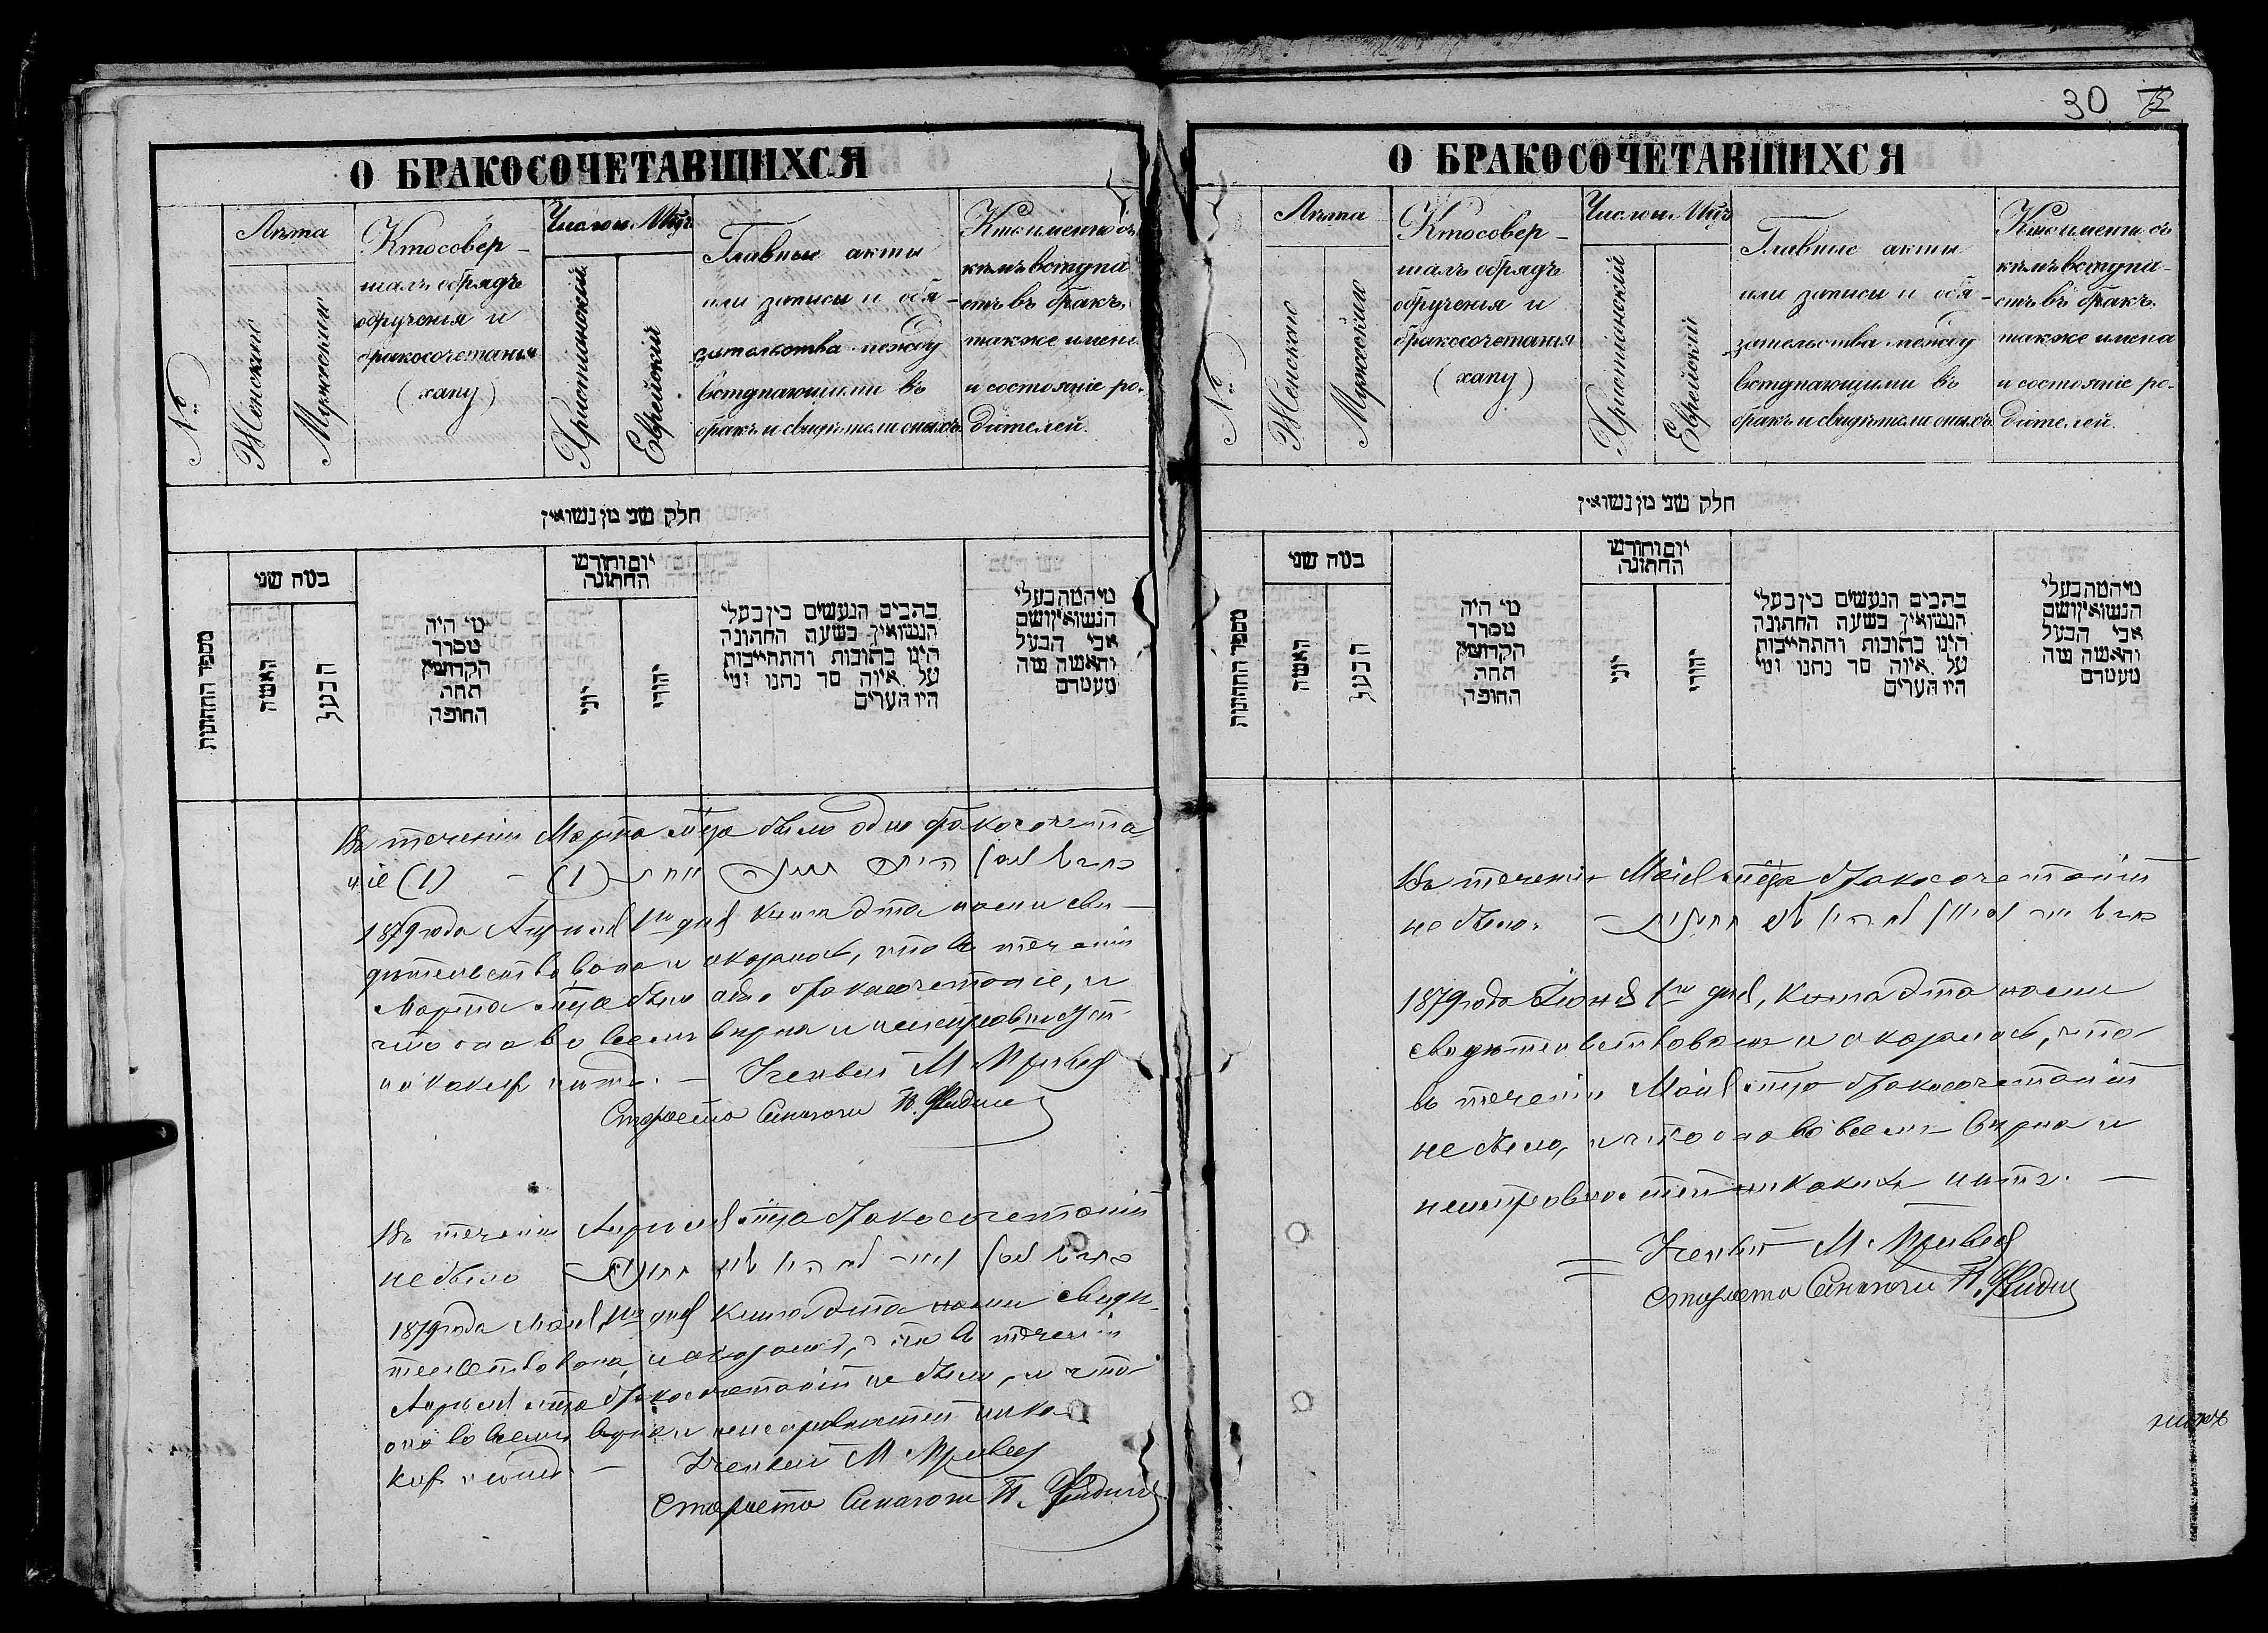 О БРАКОСОЧЕТАВШИХСЯ
№
Лѣта
Женскіе
Мужескіе
Кто совер-
шалъ обрядъ
обрученія и
бракосочетанія
(хапу)
Число и Мцъ
Христіанскій
Еврейскій
Главные акты
или записи и обя-
зательства между
вступающими въ
бракъ и свидѣтели оныхъ.
Кто именно съ
кѣмъ вступа
етъ въ бракъ,
также имена
и состояніе ро-
дителей.
חלק שני מן נשואין
מספר החתונות
כמה שני
האשה
הבעל
מי היה
מסדר
הקדושין
תחת
החופה
יום וחודש
החתונה
יוני
יהודי
כתבים הנעשים בין בעלי
הנשואין בשעת החתונה
היינו כתובות והתחייבות
על איזה סך נתנו ומי
היו העדים
מי המה בעלי
הנשואין ושם
אבי הבעל
והאשה מה
מעמדם
Въ теченіи Марта м-ца было одно бракосочета
ніе (1) – (1)
1879 года Апрѣля 1го дня книга эта нами сви-
дѣтельствована и оказалось, что въ теченіи
Марта м-ца было одно бракосочетаніе, и
что она во всемъ вѣрна и неисправностей
никакихъ нѣтъ. –
Староста Синагоги
Въ теченіи Апрѣля м-ца бракосочетаній
не было
1879 года Маія 1го дня книга эта нами свидѣ-
тельствована, и оказалось, что въ теченіи
Апрѣля м-ца бракосочетаній не было, и что
она во всемъ вѣрна и неисправностей ника-
кихъ нѣтъ. –
Староста Синагоги
30
О БРАКОСОЧЕТАВШИХСЯ
№
Лѣта
Женскіе
Мужескіе
Кто совер-
шалъ обрядъ
обрученія и
бракосочетанія
(хапу)
Число и Мцъ
Христіанскій
Еврейскій
Главные акты
или записи и обя-
зательства между
вступающими въ
бракъ и свидѣтели оныхъ.
Кто именно съ
кѣмъ вступа-
етъ въ бракъ.
также имена
и состояніе ро-
дителей.
חלק שני מן נשואין
מספר החתונות
כמה שני
האשה
הבעל
מי היה
מסדר
הקדושין
תחת
החופה
יום וחודש
החתונה
יוני
יהודי
כתבים הנעשים בין בעלי
הנשואין בשעת החתונה
היינו כתובות והתחייבות
על איזה סך נתנו ומי
היו העדים
מי המה בעלי
הנשואין ושם
אבי הבעל
והאשה מה
מעמדם
Въ теченіи Маія м-ца бракосочетаній
не было.
1879 года Іюня 1го дня, книга эта нами
свидѣтельствована и оказалось, что
въ теченіи Маія м-ца бракосочетаній
не было, и что она во всемъ вѣрна и
неисправностей никакихъ нѣтъ. –
Староста Синагоги